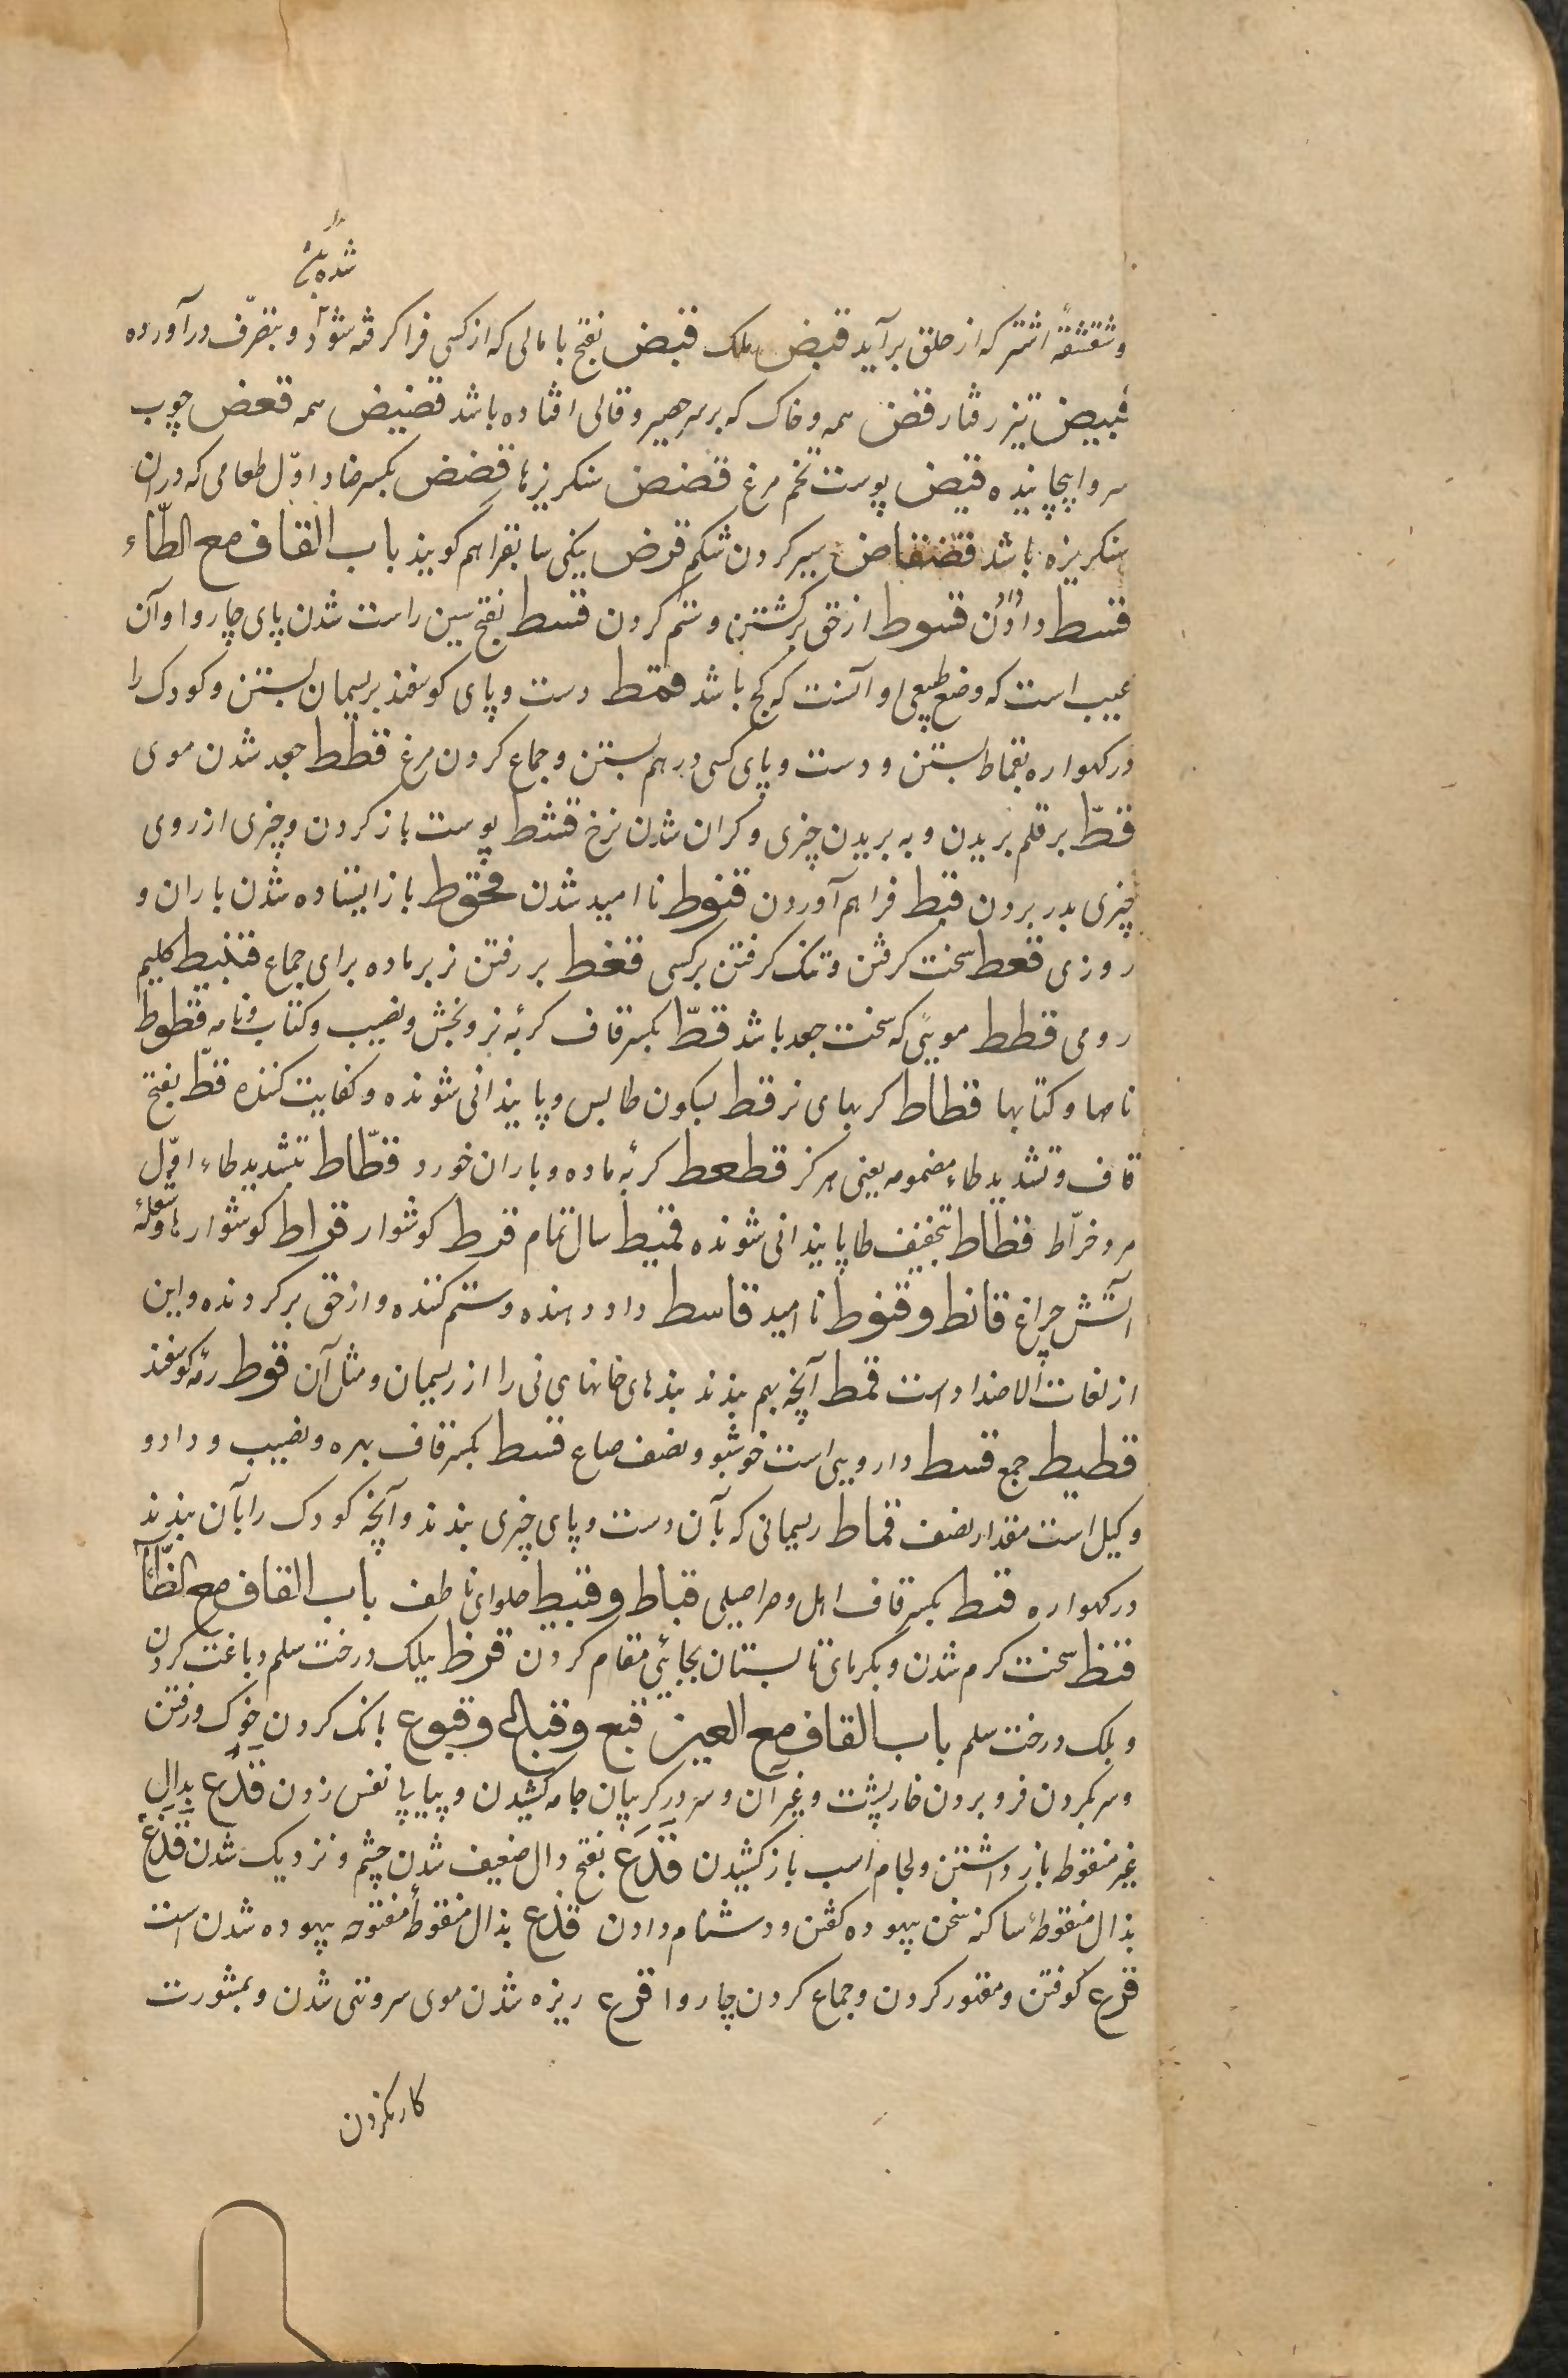 شده باشد
و شقشقهٔ اشتر که از حلق برآید قبض ملک قبض بفتح با مالی که از کسی فرا کرفته شود و بتصرّف درآورده
قبیض تیز رفتار قض همه و خاک که بر سر حصیر و قالی افتاده باشد قضیض همه قعض چوب
سر واپیچانیده قیض پوست تخم مرغ قضض سنکریزها قضض بکسر ضاد اوّل طعامی که دران
سنکریزه باشد قضقاض سیر کردن شکم قرض نیکی سابق را هم کویند باب القاف مع الطّاء
قسط دادن قسوط از حق برکشتن و ستم کردن قسط بفتح سین راست شدن پای چاروا و آن
عیب است که وضع طبیعی او آنست که کج باشد قمط دست و پای کوسفند بریسمان بستن و کودک را
در کهواره بقماط بستن و دست و پای کسی درهم بستن و جماع کردن مرغ قطط جعد شدن موی
قطّ بر قلم بریدن و به بریدن چیزی و کران شدن نرخ قشط پوست باز کردن و چیزی از روی
چیزی بدر بردن قبط فراهم آوردن قنوط ناامید شدن قحوط باز ایستاده شدن باران و
روزی قعط سخت کرفتن و تنک کرفتن بر کسی قفط بر رفتن نر بر ماده برای جماع قنبیط کلیم
رومی قطط مویی که سخت جعد باشد قطّ بکسر قاف کربهٔ نر و بخش و نصیب و کتاب و نامه قطوط
نامها و کتابها قطاط کربهای نر قط بسکون طا بس و پایندانی شونده و کفایت کننده قطّ بفتح
قاف و تشدید طاء مضمومه یعنی هرکز قطعط کربهٔ ماده و باران خورد قطّاط بتشدید طاء اوّل
مرد خرّاط قطاط بتخفیف طا پایندانی شونده قمیط سال تمام قرط کوشوار قراط کوشوارها و شعلهٔ
آتش چراغ قانط و قنوط ناامید قاسط داد دهنده و ستم کننده و از حق برکردنده و این
از لغات الاضداد است قمط آنچه بهم بندند بندهای خانهای نی را از ریسمان و مثل آن قوط رمهٔ کوسفند
قطیط جمع قسط دارویی است خوشبو و نصف صاع قسط بکسر قاف بهره و نصیب و داد و
و کیل است مقدار نصف قماط ریسمانی که بآن دست و پای چیزی بندند و آنچه کودک را بآن بندند
در کهواره قبط بکسر قاف اهل و مر اصلی قباط و قبیط حلوای ناطف باب القاف مع الظّاء
قیظ سخت کرم شدن و بکرمای تابستان بجائی مقام کردن قرظ ببلک درخت سلم دباغت کردن
و بلک درخت سلم باب القاف مع العین قبع و قباع و قبوع بانک کردن خوک و رفتن
و سر بکردن فرو بردن خارپشت و غیر آن و سر در کریبان جامه کشیدن و پیاپی نفس زدن قدع بدال
غیر منقوطه باز داشتن و لجام اسب باز کشیدن قدع بفتح دال ضعیف شدن چشم و نزدیک شدن قذع
بذال منقوطهٔ ساکنه سخن بیهوده کفتن و دشنام دادن قذع بذال منقوطهٔ مفتوحه بیهوده شدن است
قرع کوفتن و مقهور کردن و جماع کردن چاروا قرع ریزه شدن موی سر و تنی شدن و بمشورت
کار نکردن